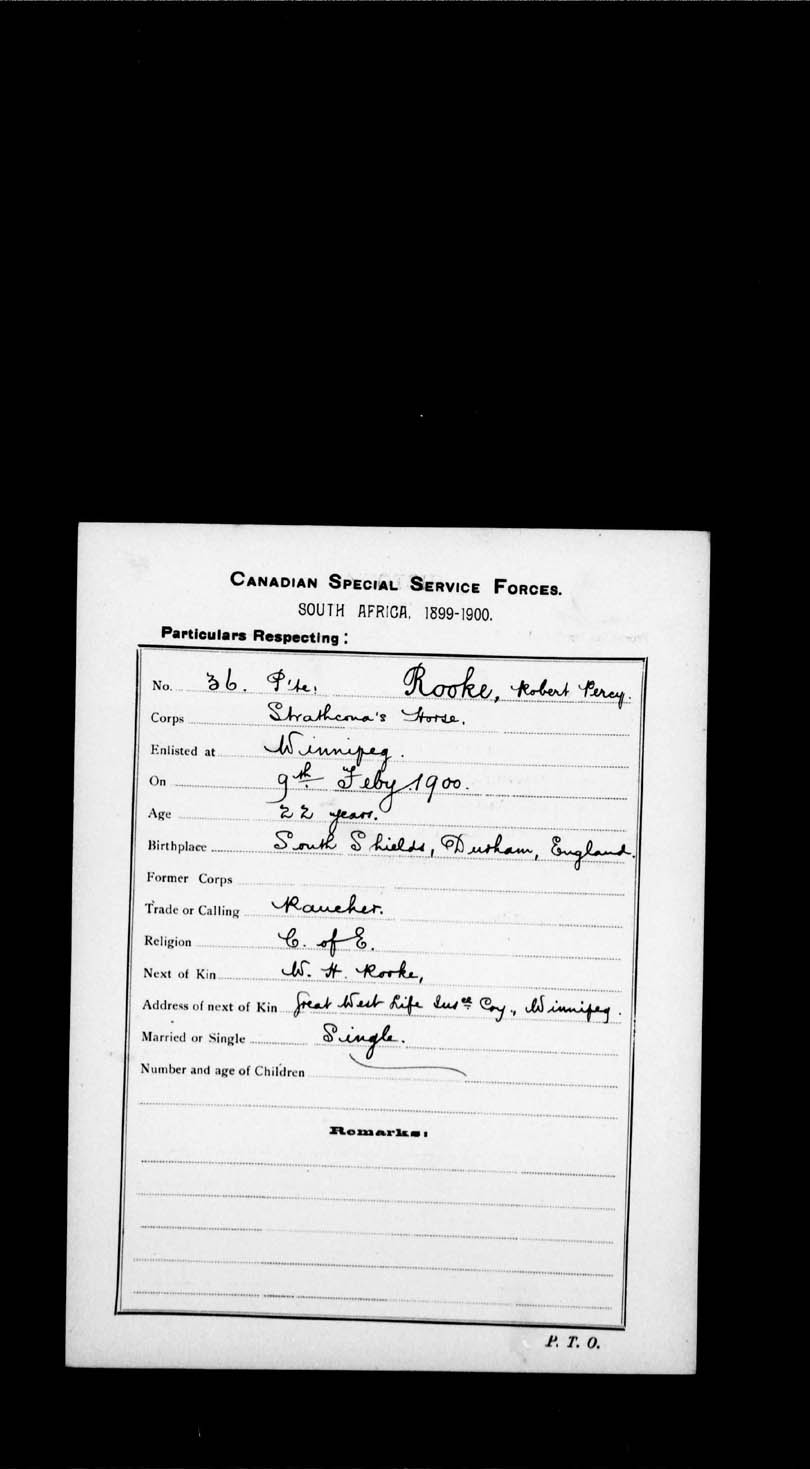 CANADIAN SPECIAL SERVICE FORCES.
SOUTH AFRICA, 1899-1900.
Particulars Respecting:
No. 36. P'te. Rooke, Robert Percy.
Corps Strathcona's Horse.
Enlisted at Winnipeg.
On 9th Feby 1900.
Age 22 years.
Birthplace South Shields, Durham, England.
Former Corps
Trade or Calling Rancher.
Religion C. of E.
Next of Kin W. H. Rooke,
Address of next of Kin Great West Life Insce Coy., Winnipeg.
Married or Single Single.
Number and age of Children
Remarks:
P. T. O.